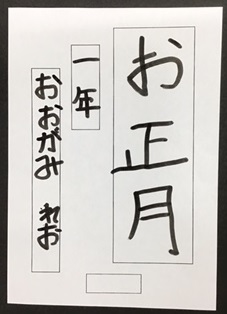 お正月
一年
おおがみ れお